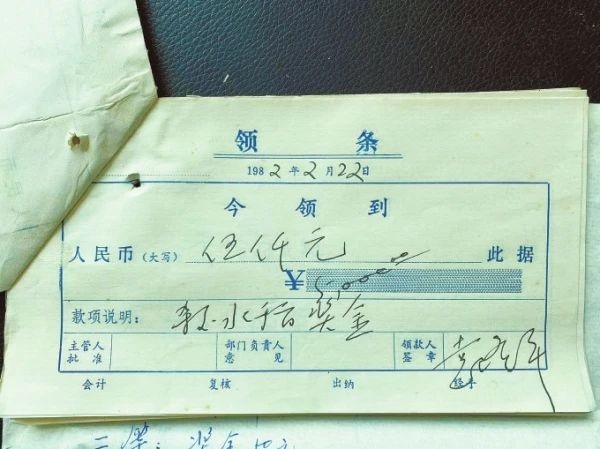 领 条
1982年2月22日
今 领 到
人民币(大写) 伍仟元 此据
¥ 5,000.00
款项说明: 水稻奖金
主管人批准 部门负责人意见 领款人签章 袁隆平
会计 复核 出纳 经手
奖金